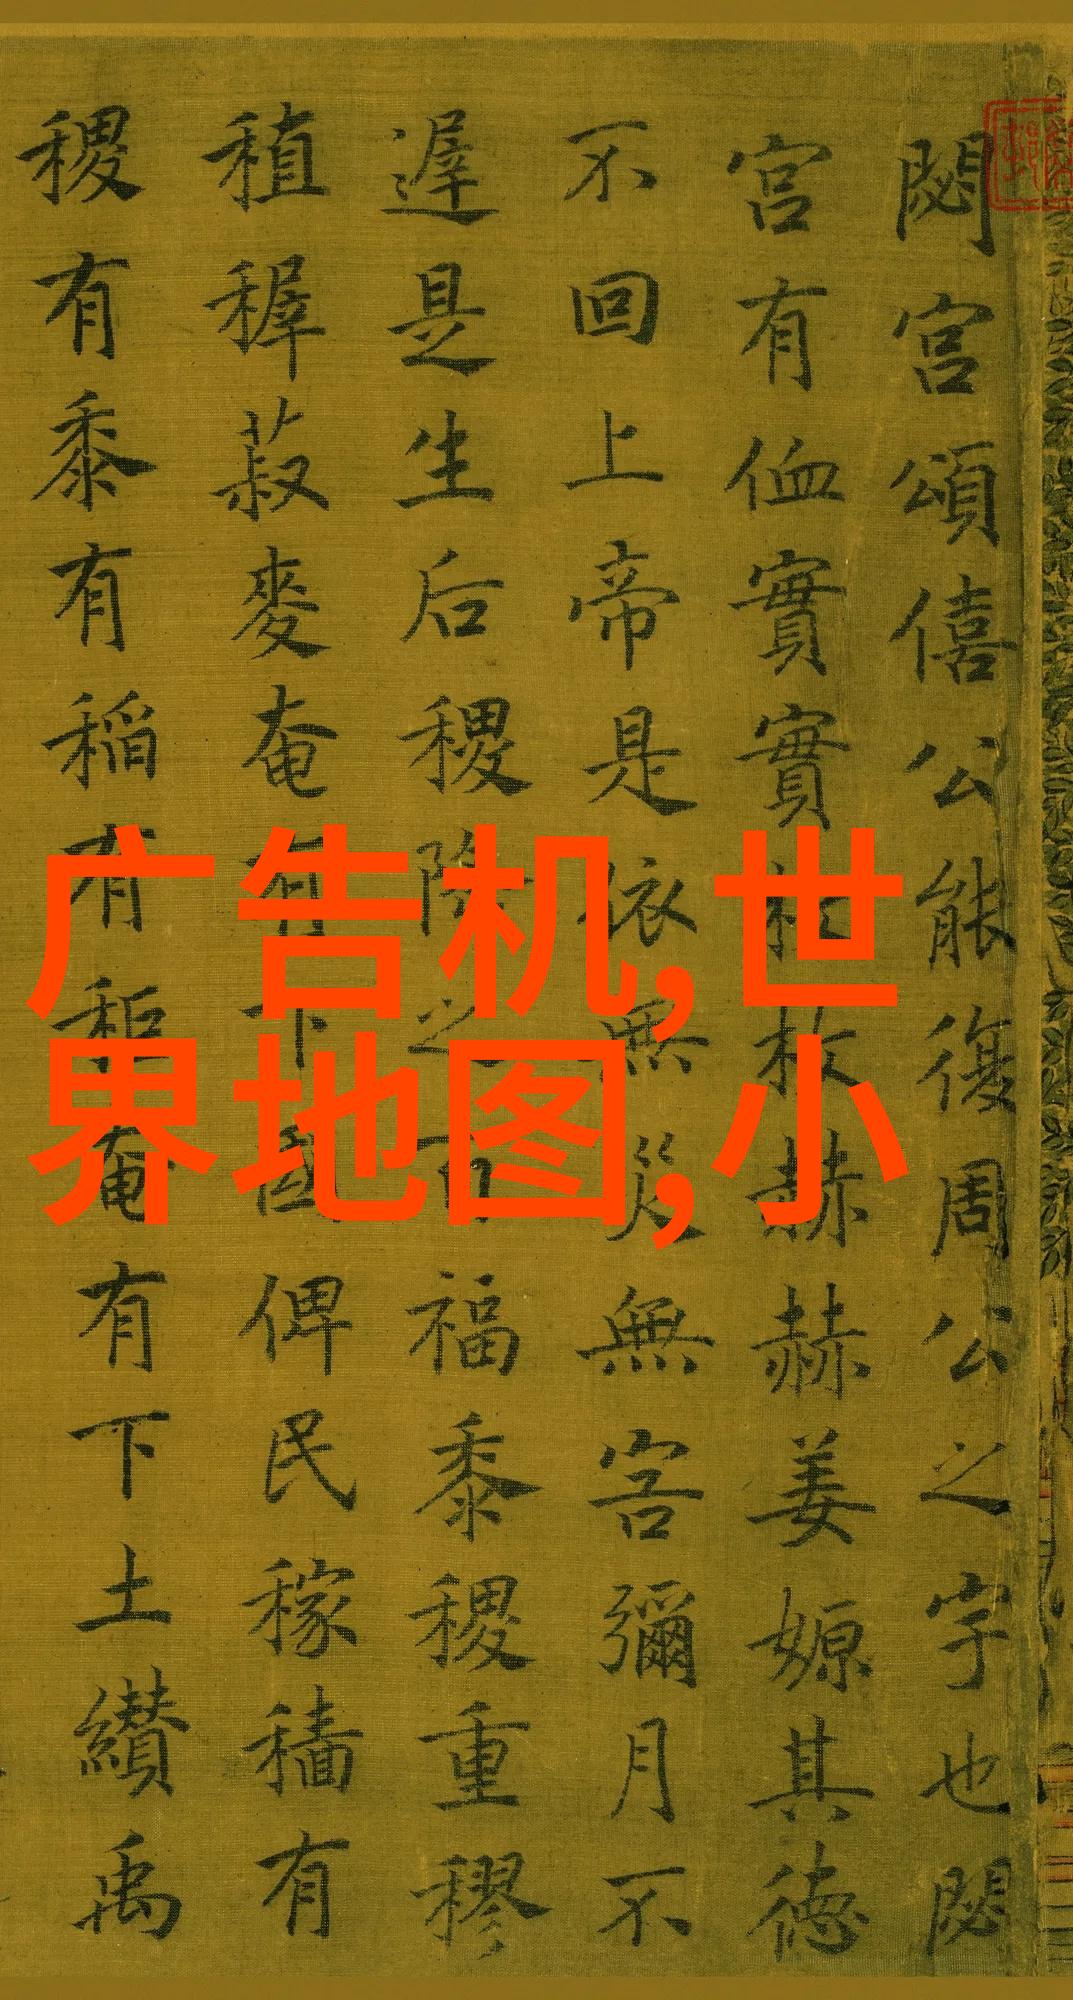 閟宮頌僖公能復周公之宇也閟
宮有侐實實枚枚赫赫姜嫄其德
不回上帝是依無災無害彌月不
遲是生后稷降之百福黍稷重穋
稙稺菽麥奄有下國俾民稼穡有
稷有黍有稻有秬奄有下土纘禹
广告机,世
界地图,小